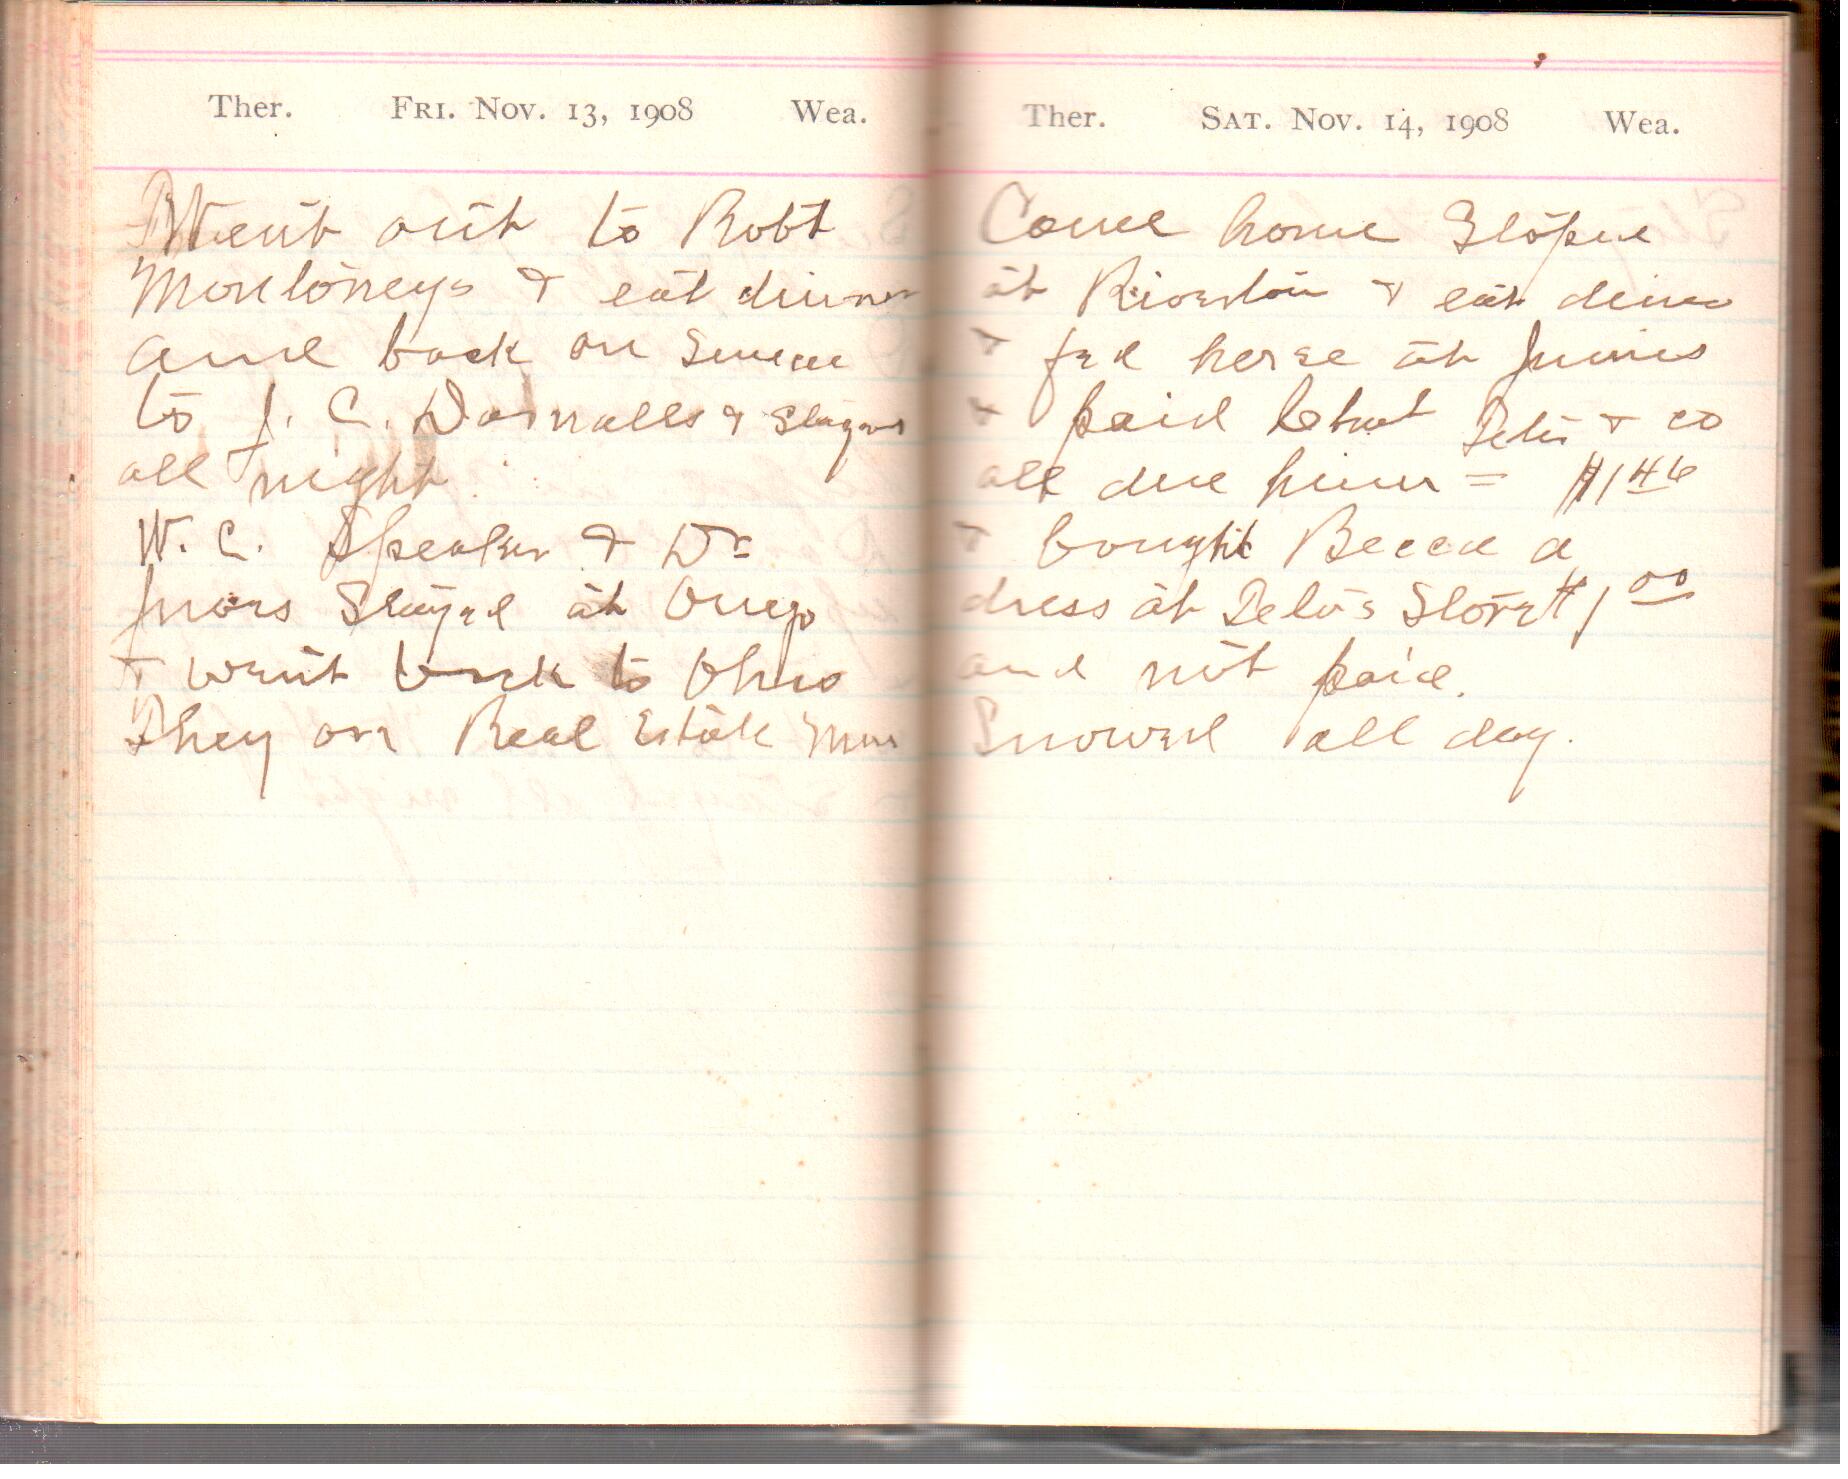 Ther. FRI. NOV. 13, 1908 Wea.
Went out to Robt
& eat dinner
and back on
to J. C. Darnalls & Stayed
all night
W. C. Speaker & Dr
Stayed at
& went back to Ohio
They are Real Estate Men
Ther. SAT. NOV. 14, 1908 Wea.
Come home Stoped
at & eat diner
& fed horse at
& paid what & co
all due him = $1 46
& bought Becca a
dress at Store $1 00
and not paid.
Snowed all day.